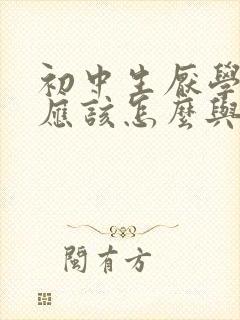 初中生厭學
應該怎麼與
閩有方